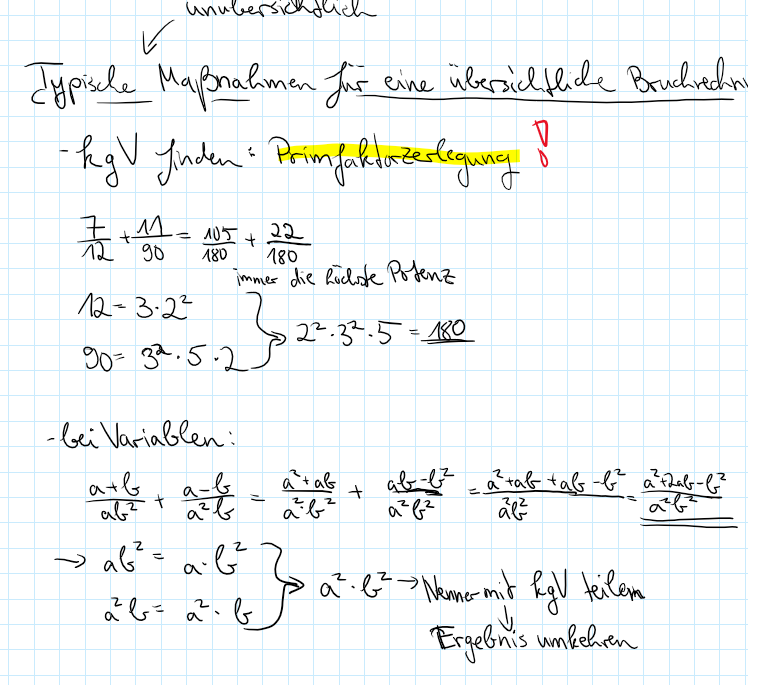 unübersichtlich
Typische Maßnahmen für eine übersichtliche Bruchrechn
- kgV finden: Primfaktorzerlegung !
7/12 + 11/90 = 105/180 + 22/180
immer die höchste Potenz
12 = 3·2²
90 = 3²·5·2
2²·3²·5 = 180
- bei Variablen:
(a+b)/(ab²) + (a-b)/(a²b) = (a²+ab)/(a²·b²) + (ab-b²)/(a²b²) = (a²+ab+ab-b²)/(a²b²) = (a²+2ab-b²)/(a²b²)
→ ab² = a·b²
a²b = a²·b
a²·b² → Nenner mit kgV teilen
↓
Ergebnis umkehren